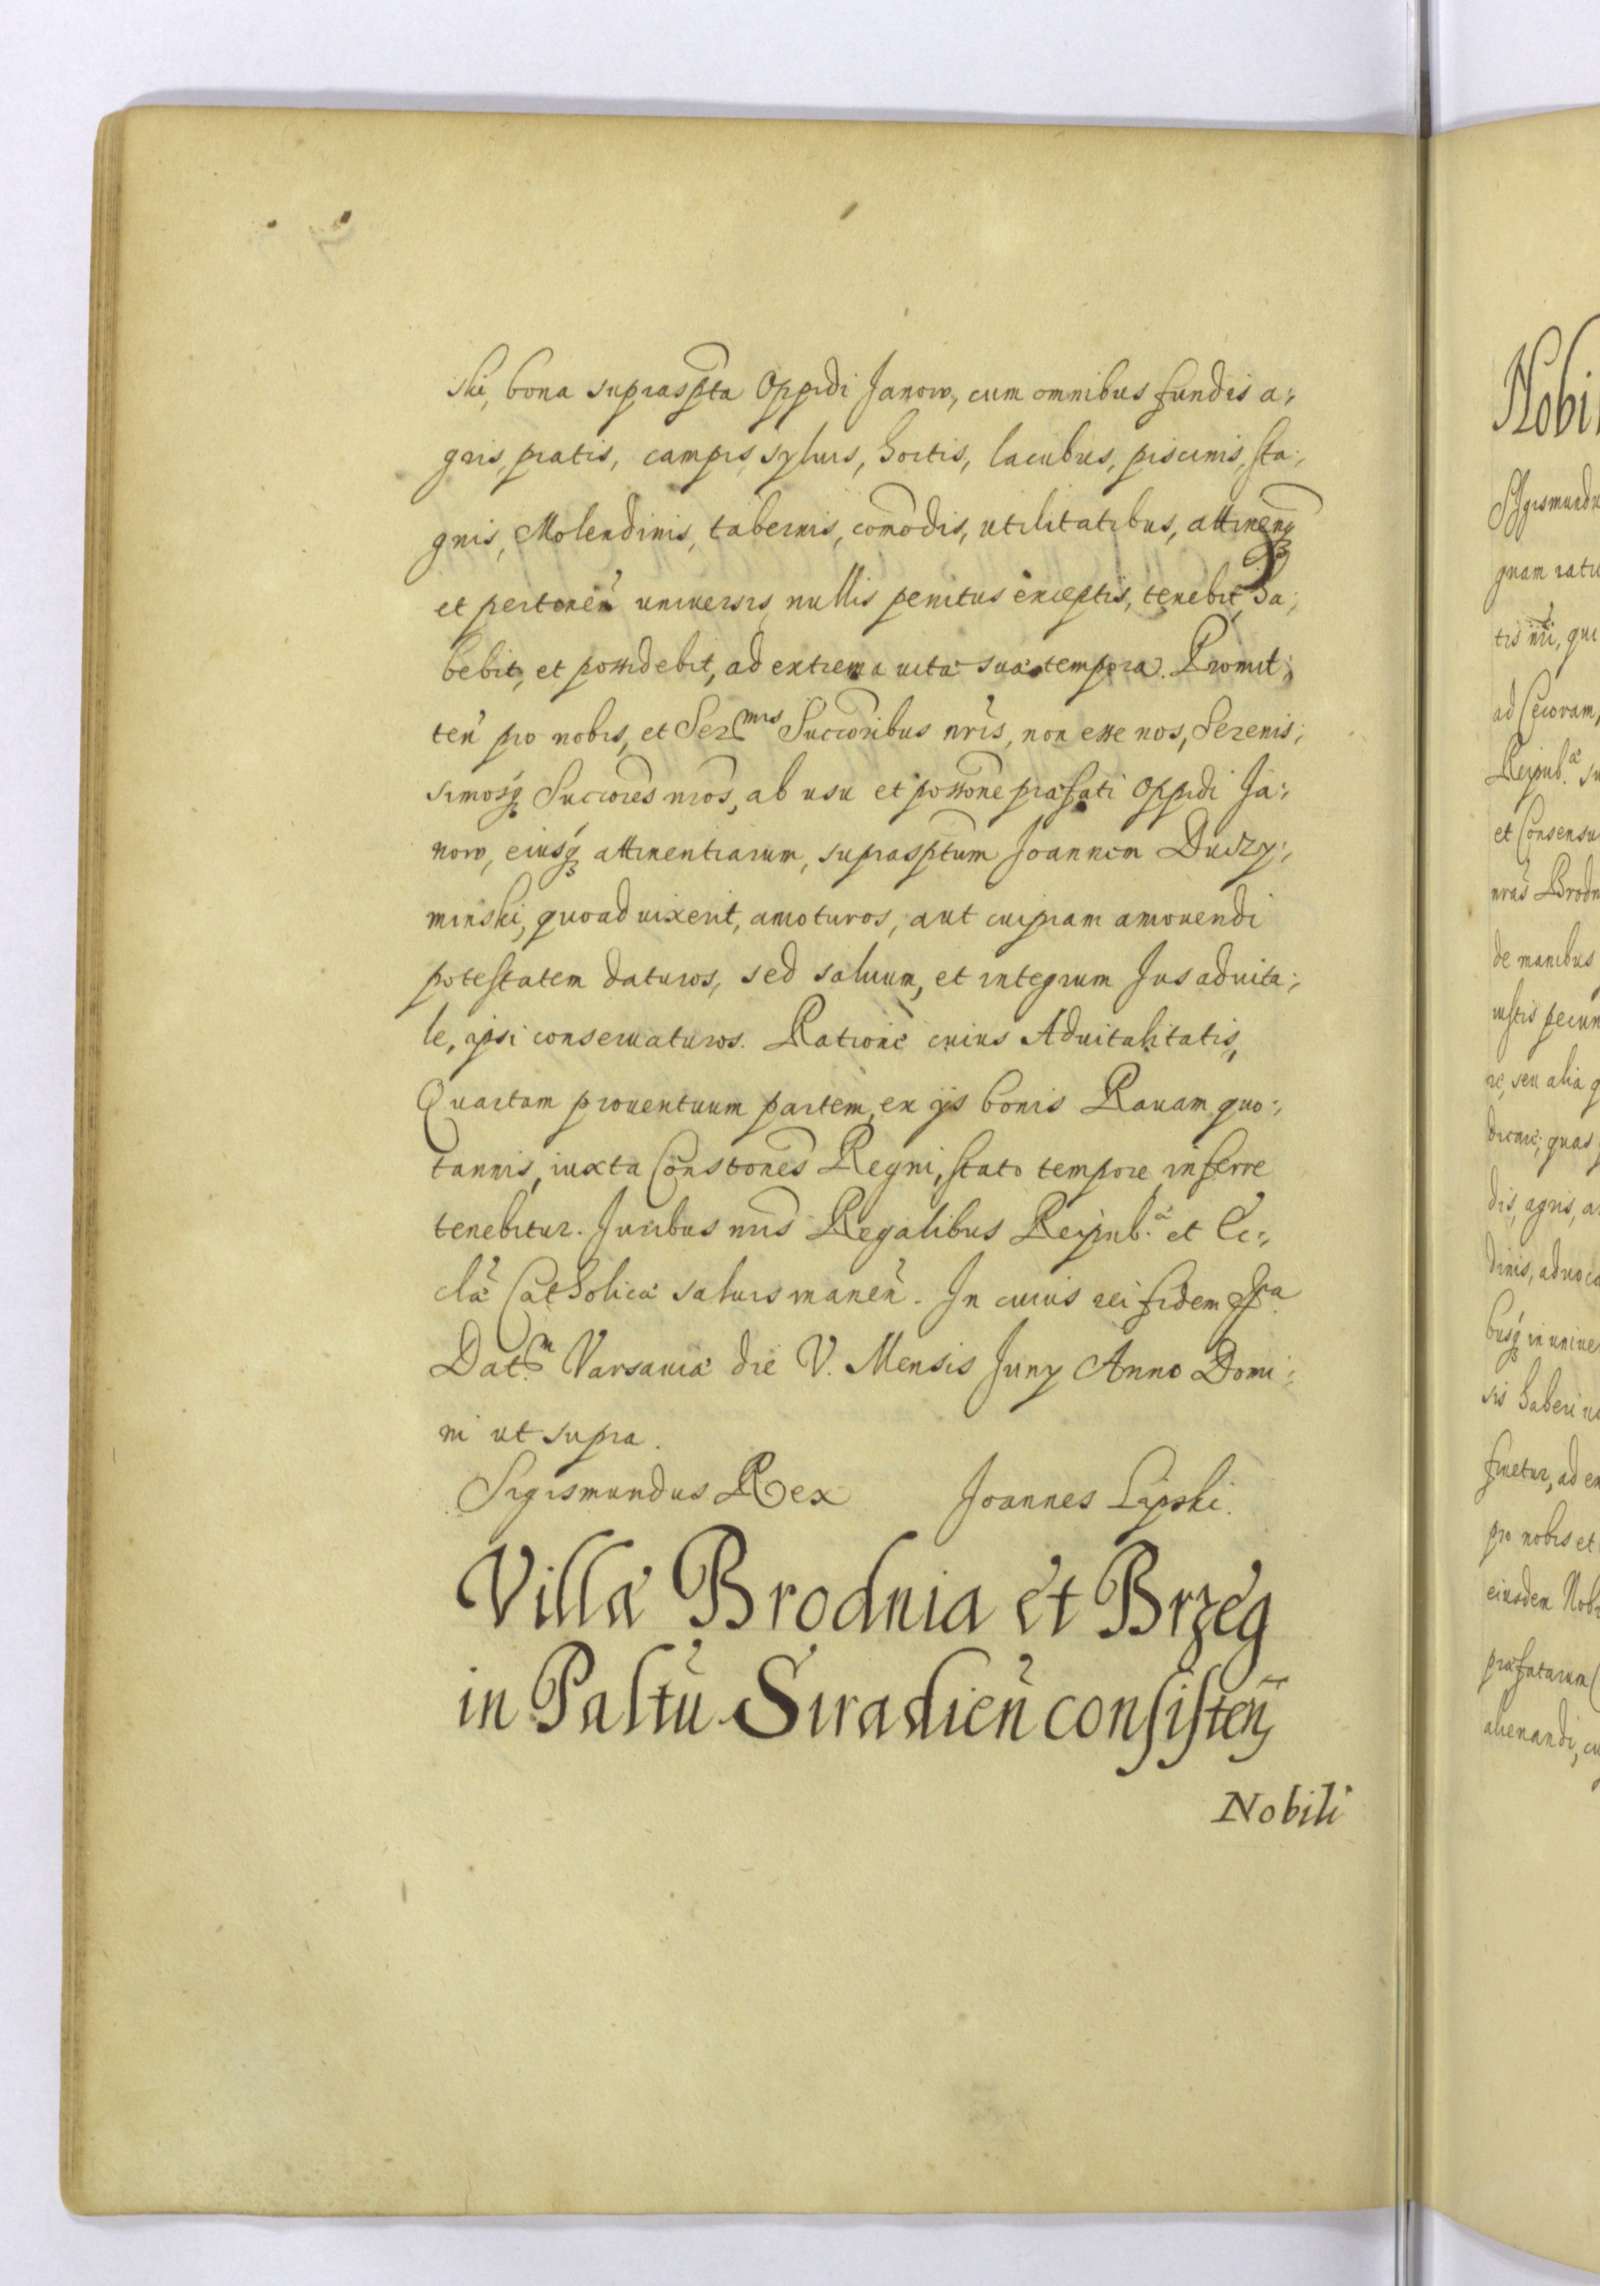 ski, bona suprasptа Oppidi Janow, cum omnibus fundis a⹀
gris, pratis, campis, syluis, hortis, lacubus, piscinis, sta⹀
gnis, Molendinis, tabernis, comodis, utilitatibus, attinen
et pertinen universis, nullis penitus exceptis, tenebit, ha⹀
bebit, et possidebit, ad extrema uitæ suæ tempora. Promit⹀
ten pro nobis, et Ser mis Succoribus nris, non esse nos, Serenis⹀
simosq Succores nros, ab usu et possone præfati Oppidi Ja⹀
now, eiusq attinentiarum, suprasptum Joannem Duczy⹀
minski, quoad uixerit, amoturos, aut cuipiam amouendi
potestatem daturos, sed saluum, et integrum Jus aduita⹀
le, ipsi conseruaturos. Ratione cuius Aduitalitatis,
Quartam prouentuum partem, ex ijs bonis Rauam quo⹀
tannis, iuxta Constones Regni, stato tempore inferre
tenebitur. Juribus nris Regalibus Reipub. æ et Ec⹀
clæ Catholicæ saluis manen. In cuius rei fidem
Dat. m Varsauiæ die V. Mensis Juny Anno Domi⹀
ni ut supra.
Sigismundus Rex Joannes Lipski.
Villæ Brodnia et Brzeg
in Paltu Siradien consisten
Nobili
Nobi
Sigismundu
gnam ratu
tis nri, qui
ad Cecoram,
Reipub. æ su
et Consensu
nras Brodn
de manibus
iustis pecun
re, seu alia q
dicare; quas
dis, agris, a
dinis, aduoca
busq in univer
sis haberi
fruetur, ad ex
pro nobis et
eiusdem Nobi
præfatarum
alienandi, cu